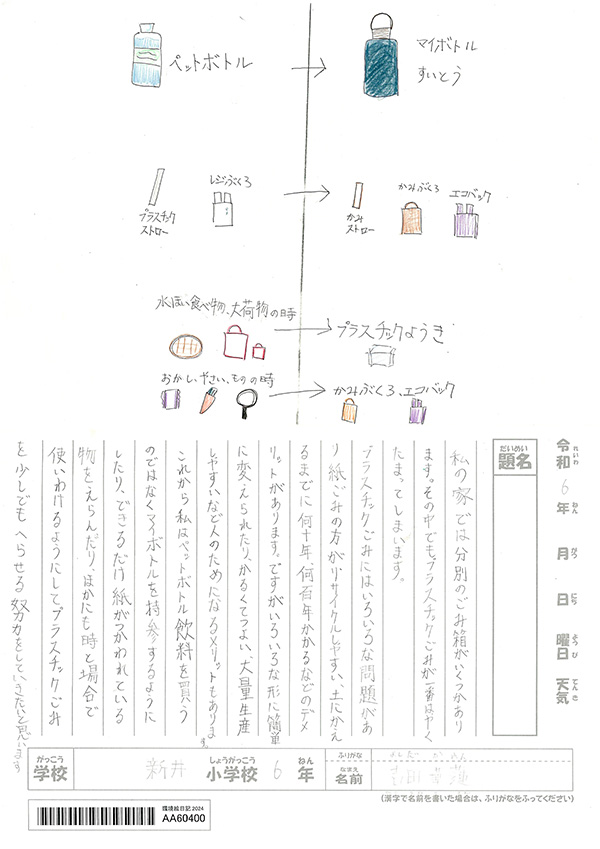 ペットボトル
マイボトル
すいとう
プラスチック
ストロー
レジぶくろ
かみ
ストロー
かみぶくろ
エコバック
水ほい食べ物、大荷物の時
プラスチックようき
おかし、やさい、ものの時
かみぶくろ、エコバック
令和6年 月 日 曜日 天気
れいわ ねん がつ にち ようび てんき
だいめい
題名
私の家では分別のごみ箱がいくつかあり
ます。その中でもプラスチックごみが一番はやく
たまってしまいます。
プラスチックごみにはいろいろな問題があ
り紙ごみの方がリサイクルしやすい、土にかえ
るまでに何十年、何百年かかるなどのデメ
リットがあります。ですがいろいろな形に簡単
に変えられたり、かるくてつよい、大量生産
しやすいなど人のためになるメリットもあります。
これから私はペットボトル飲料を買う
のではなくマイボトルを持参するように
したり、できるだけ紙がつかわれている
物をえらんだり、ほかにも時と場合で
使いわけるようにしてプラスチックごみ
を少しでもへらせる努力をしていきたいと思います
がっこう
学校
新井
しょうがっこう
小学校
6
ねん
年
ふりがな
なまえ
名前
(漢字で名前を書いた場合は、ふりがなをふってください)
環境絵日記2024
AA60400